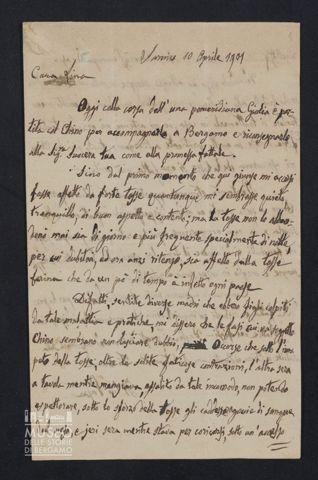 10 Aprile 1901
Cara Lina
Oggi colla corsa dell'una pomeridiana Giulia è par-
tita col Chino per accompagnarlo a Bergamo e riconsegnarlo
alla Sig.ra Suocera tua come alla promessa fattale.
Sino dal primo momento che qui giunse mi accorsi
fosse affetto da forte tosse quantunque mi sembrasse quieto,
tranquillo, di buon appetito e contento; ma la tosse non lo abban-
donò mai sia di giorno e più frequente specialmente di notte,
per cui dubitai, ed ora anzi ritengo, sia affetto dalla tosse
farina che da un pò di tempo à infetto ogni paese.
Difatti, sentite diverse madri che ebbero figli colpiti
da tale malattia e pratiche, mi dissero che le fasi cui va soggetto
Chino sembrano non lasciare dubbio. Occorse che sotto l'im-
peto della tosse, oltre le solite faticose contrazioni, l'altra sera
a tavola mentre mangiava, assalito da tale incomodo, non potendo
espettorare, sotto lo sforzo della tosse gli cadessero goccie di sangue
e jeri sera mentre stava per coricarsi, sott'un'accesso
MUSEO
DELLE STORIE
DI BERGAMO